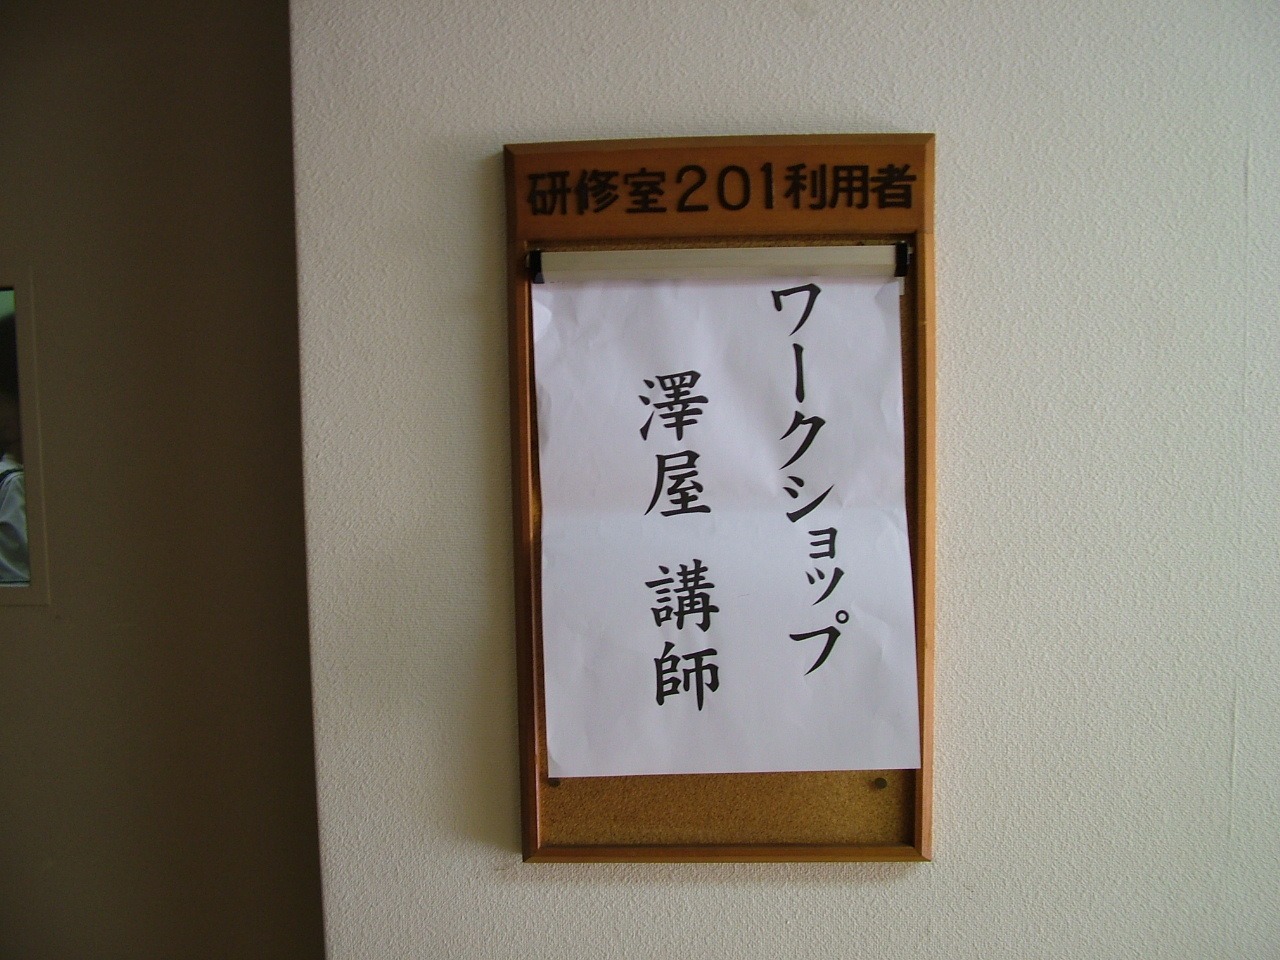 研修室201利用者
ワークショップ
澤屋 講師